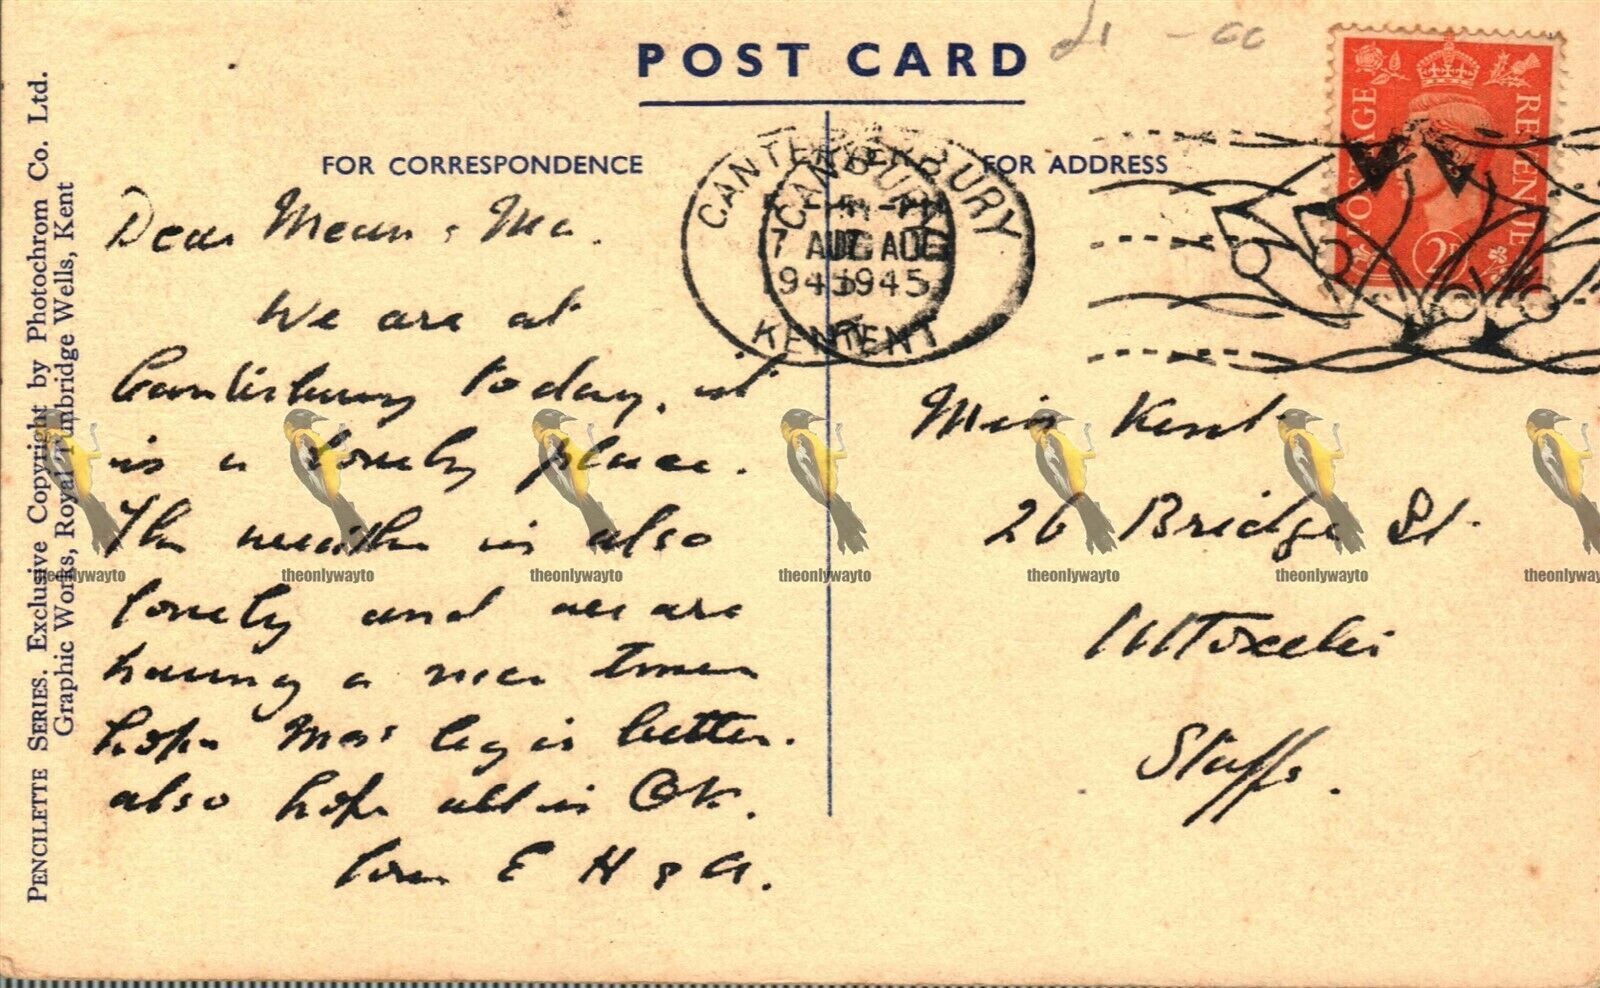 £1-00
POST CARD
FOR CORRESPONDENCE
FOR ADDRESS
PENCILETTE SERIES. Exclusive Copyright by Photochrom Co. Ltd.
Graphic Works, Royal Tunbridge Wells, Kent
CANTERBURY
CANTERBURY
7 AUG
AUG
1945
1945
KENT
KENT
POSTAGE
REVENUE
2D
Dear & Ma.
We are at
Canterbury today, it
is a lovely place.
The weather is also
lovely and we are
having a nice time
hope Mas leg is better.
also hope all is OK.
Love E H & A.
Miss Kent
26 Bridge St.
Uttoxeter
Staffs.
theonlywayto
theonlywayto
theonlywayto
theonlywayto
theonlywayto
theonlywayto
theonlywayto